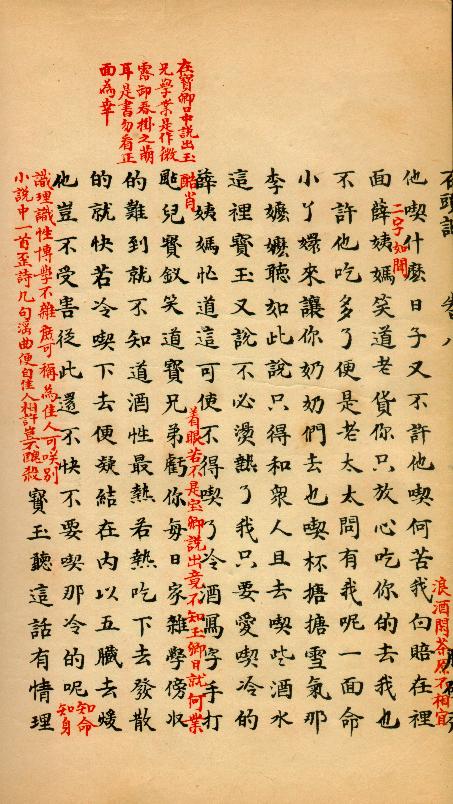 石頭記 卷八
浪酒閑茶原不相宜
他喫什麼日子又不許他喫何苦我白賠在裡
二字如聞
面薛姨媽笑道老貨你只放心吃你的去我也
不許他吃多了便是老太太問有我呢一面命
小丫嬛來讓你奶奶們去也喫杯搪搪雪氣那
李嬤嬤聽如此說只得和衆人且去喫些酒水
這裡寶玉又說不必燙熱了我只要愛喫冷的
薛姨媽忙道這可使不得喫了冷酒寫字手打
在寶卿口中說出玉
兄學業是作微
露卸春掛之萌
耳是書勿看正
面為幸
颭兒
酷肖
寶釵笑道寶兄弟虧你每日家雜學傍收
着眼若不是宝卿說出竟不知玉卿日就何業
的難到就不知道酒性最熱若熱吃下去發散
的就快若冷喫下去便凝結在內以五臟去煖
他豈不受害從此還不快不要喫那冷的呢
知命
知身
識理識性博學不雜庶可稱為佳人可笑別
小說中一首歪詩几句淫曲便自佳人相許豈不醜殺
寶玉聽這話有情理